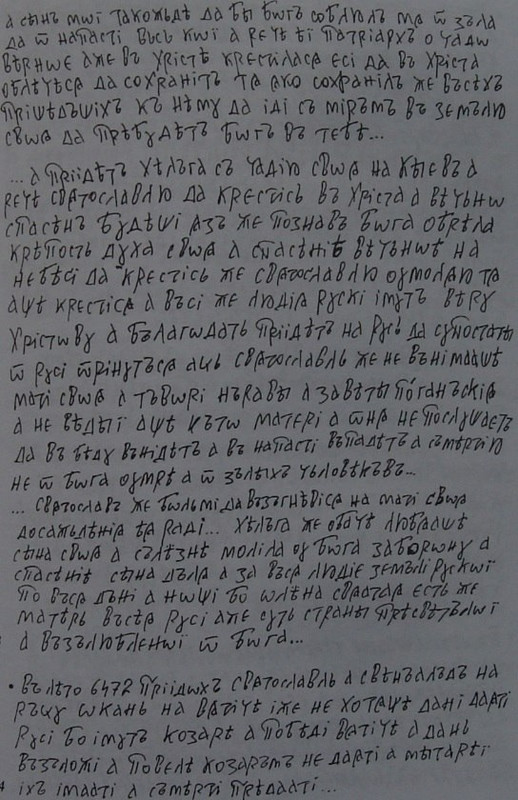 а сѣнъ мѡї такожьдѣ да бы бѡгъ соблюлъ мѧ ѿ зъла
да ѿ напасті вьсь кѡї а речѣ ѣї патріархъ о чадѡ
вѣрнѡе аже въ хрістѣ крестіласѧ есі да въ хріста
облечѣсѧ да сохраніть тѧ ѧко сохранілъ же вьсѣхъ
прішѣдъшіхъ къ нѣму да іді съ мірѣмъ въ земълю
своѧ да прѣбудѣть бѡгъ въ тебѣ...
... а пріідѣтъ хѣльга съ чадію своѧ на кыевъ а
речѣ свѧтославлю да крестісь въ хріста а вѣчьнѡ
спасѣнъ будѣші азъ же познавъ бѡга обрѣла
крѣпость духа своѧ а спасѣніѣ вѣчьнѡѣ на
небѣсі да крестісь же свѧтославлю оумолѧю тѧ
ащѣ крестісѧ а въсі же людіѧ рускі імутъ вѣру
хрістову а бълагодать пріідѣтъ на русь да супостаты
ѿ русі ѿрінутъсѧ аць свѧтославль же не вънімашѣ
маті своѧ а тъворі нъравы а завѣты поганъскіѧ
а не вѣдыї ащѣ къто матері а ѡнѧ не послушаетъ
да въ бѣду вънідѣтъ а въ напасті въпадѣтъ а съмертію
не ѿ бѡга оумрѣ а ѿ зълыхъ чьловѣкъвъ...
... свѧтославъ же больмі да възъгнѣвісѧ на маті своѧ
досажьдѣніѧ ѣѧ раді... хѣльга же обачѣ любѧашѣ
сѣна своѧ а сълѣзнѣ моліла оу бѡга заборону а
спасѣніѣ сѣна дълѧ а за въсѧ людіе земълі рускѡї
по въсѧ дьні а нѡщі бо ѡлѣна свѧтаѧ есть же
матѣрь въсѣѧ русі аже суть страны прѣсвѣтълѡї
а възълюбленѡї ѿ бѡга...
• въ лѣто 6472 пріідѡхъ свѧтославль а свѣнъалъдъ на
рѣцу ѡкань на вѧтічѣ іже не хотѧщѣ дані даѧті
русі бо імутъ козарѣ а побѣді вѧтічѣ а дань
възъложі а повелѣ козарѣмъ не даѧті а мытарѣї
іхъ імааті а съмѣрті прѣдааті...